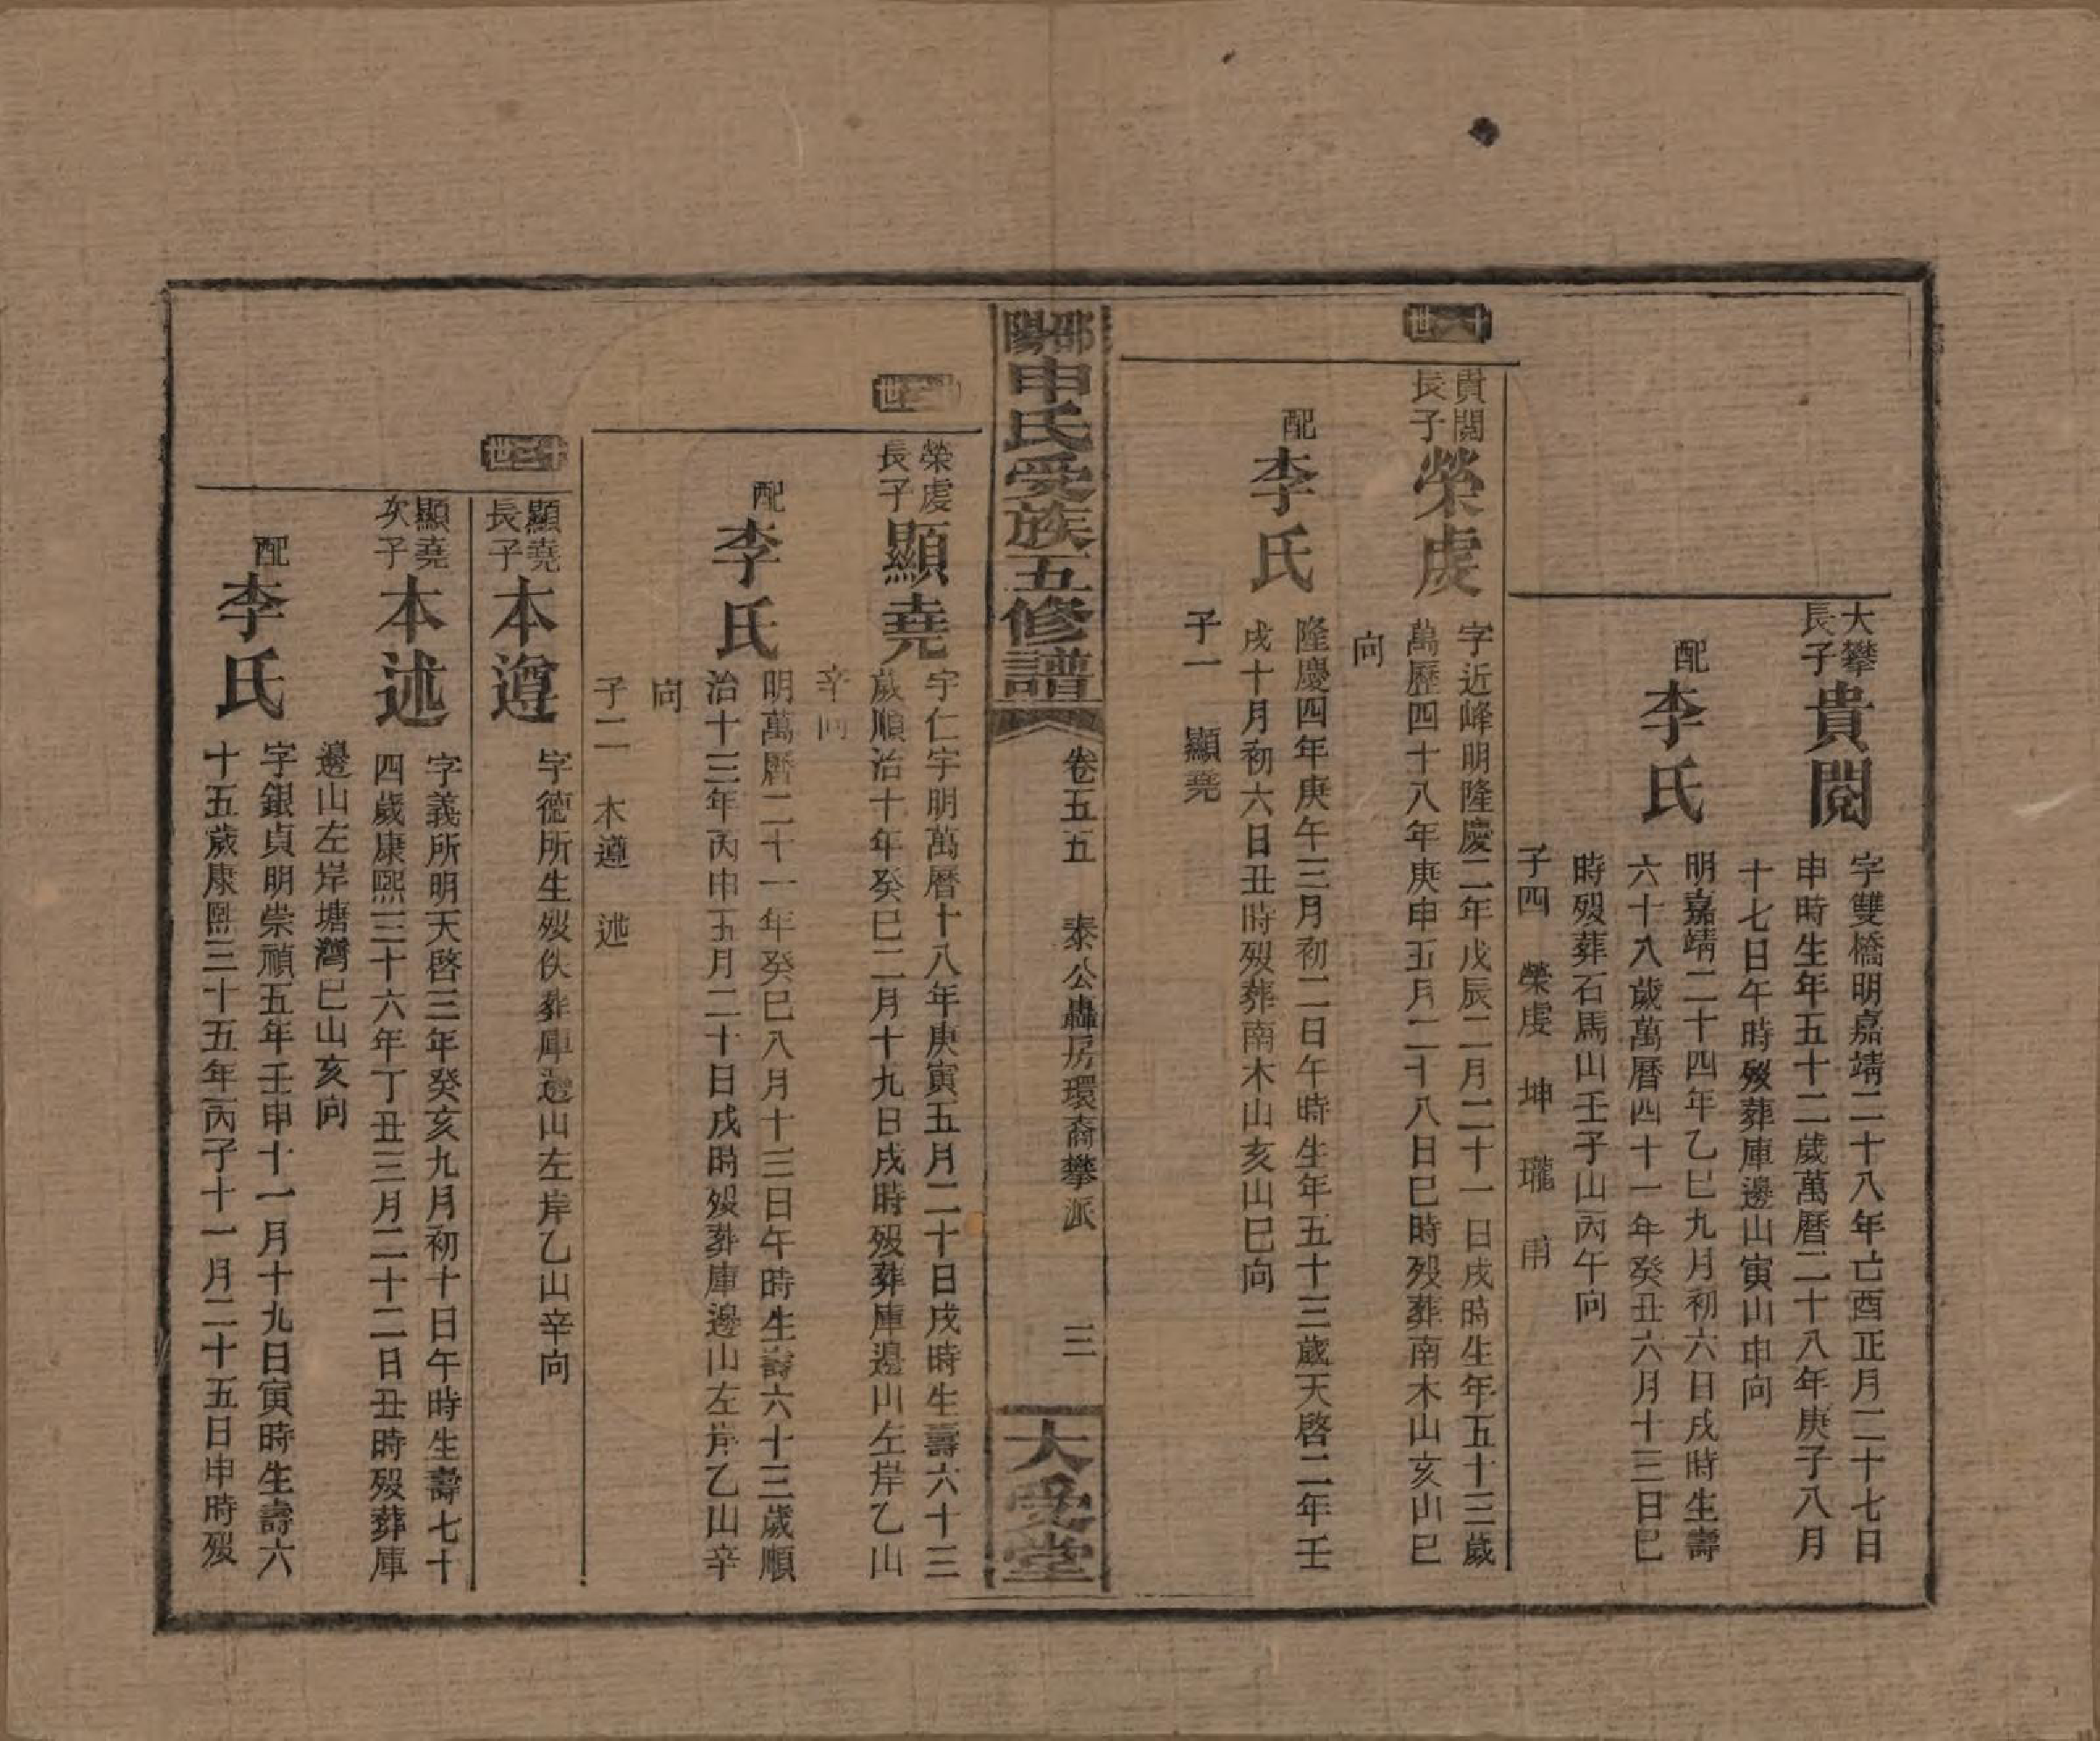 大攀
長子
貴閱
字雙橋明嘉靖二十八年亡酉正月二十七日
申時生年五十二歲萬曆二十八年庚子八月
十七日午時歿葬庫邊山寅山申向
配
李氏
明嘉靖二十四年乙巳九月初六日戌時生壽
六十八歲萬曆四十一年癸丑六月十三日巳
時歿葬石馬山壬子山丙午向
子四　榮虔　坤　瓏　甫
世
貴閱
長子
榮虔
字近峰明隆慶二年戊辰二月二十一日戌時生年五十三歲
萬歷四十八年庚申五月二十八日巳時歿葬南木山亥山巳
向
配
李氏
隆慶四年庚午三月初二日午時生年五十三歲天啓二年壬
戌十月初六日丑時歿葬南木山亥山巳向
子一　顯堯
邵陽申氏受族五修譜
卷五五　泰公轟房環裔攀派　三
大受堂
世
榮虔
長子
顯堯
字仁宇明萬曆十八年庚寅五月二十日戌時生壽六十三
歲順治十年癸巳二月十九日戌時歿葬庫邊山左岸乙山
辛向
配
李氏
明萬曆二十一年癸巳八月十三日午時生壽六十三歲順
治十三年丙申五月二十日戌時歿葬庫邊山左岸乙山辛
向
子二　本遵　述
世
顯堯
長子
本遵
字德所生歿佚葬庫邊山左岸乙山辛向
顯堯
次子
本述
字義所明天啓三年癸亥九月初十日午時生壽七十
四歲康熙三十六年丁丑三月二十二日丑時歿葬庫
邊山左岸塘灣巳山亥向
配
李氏
字銀貞明崇禎五年壬申十一月十九日寅時生壽六
十五歲康熙三十五年丙子十一月二十五日申時歿